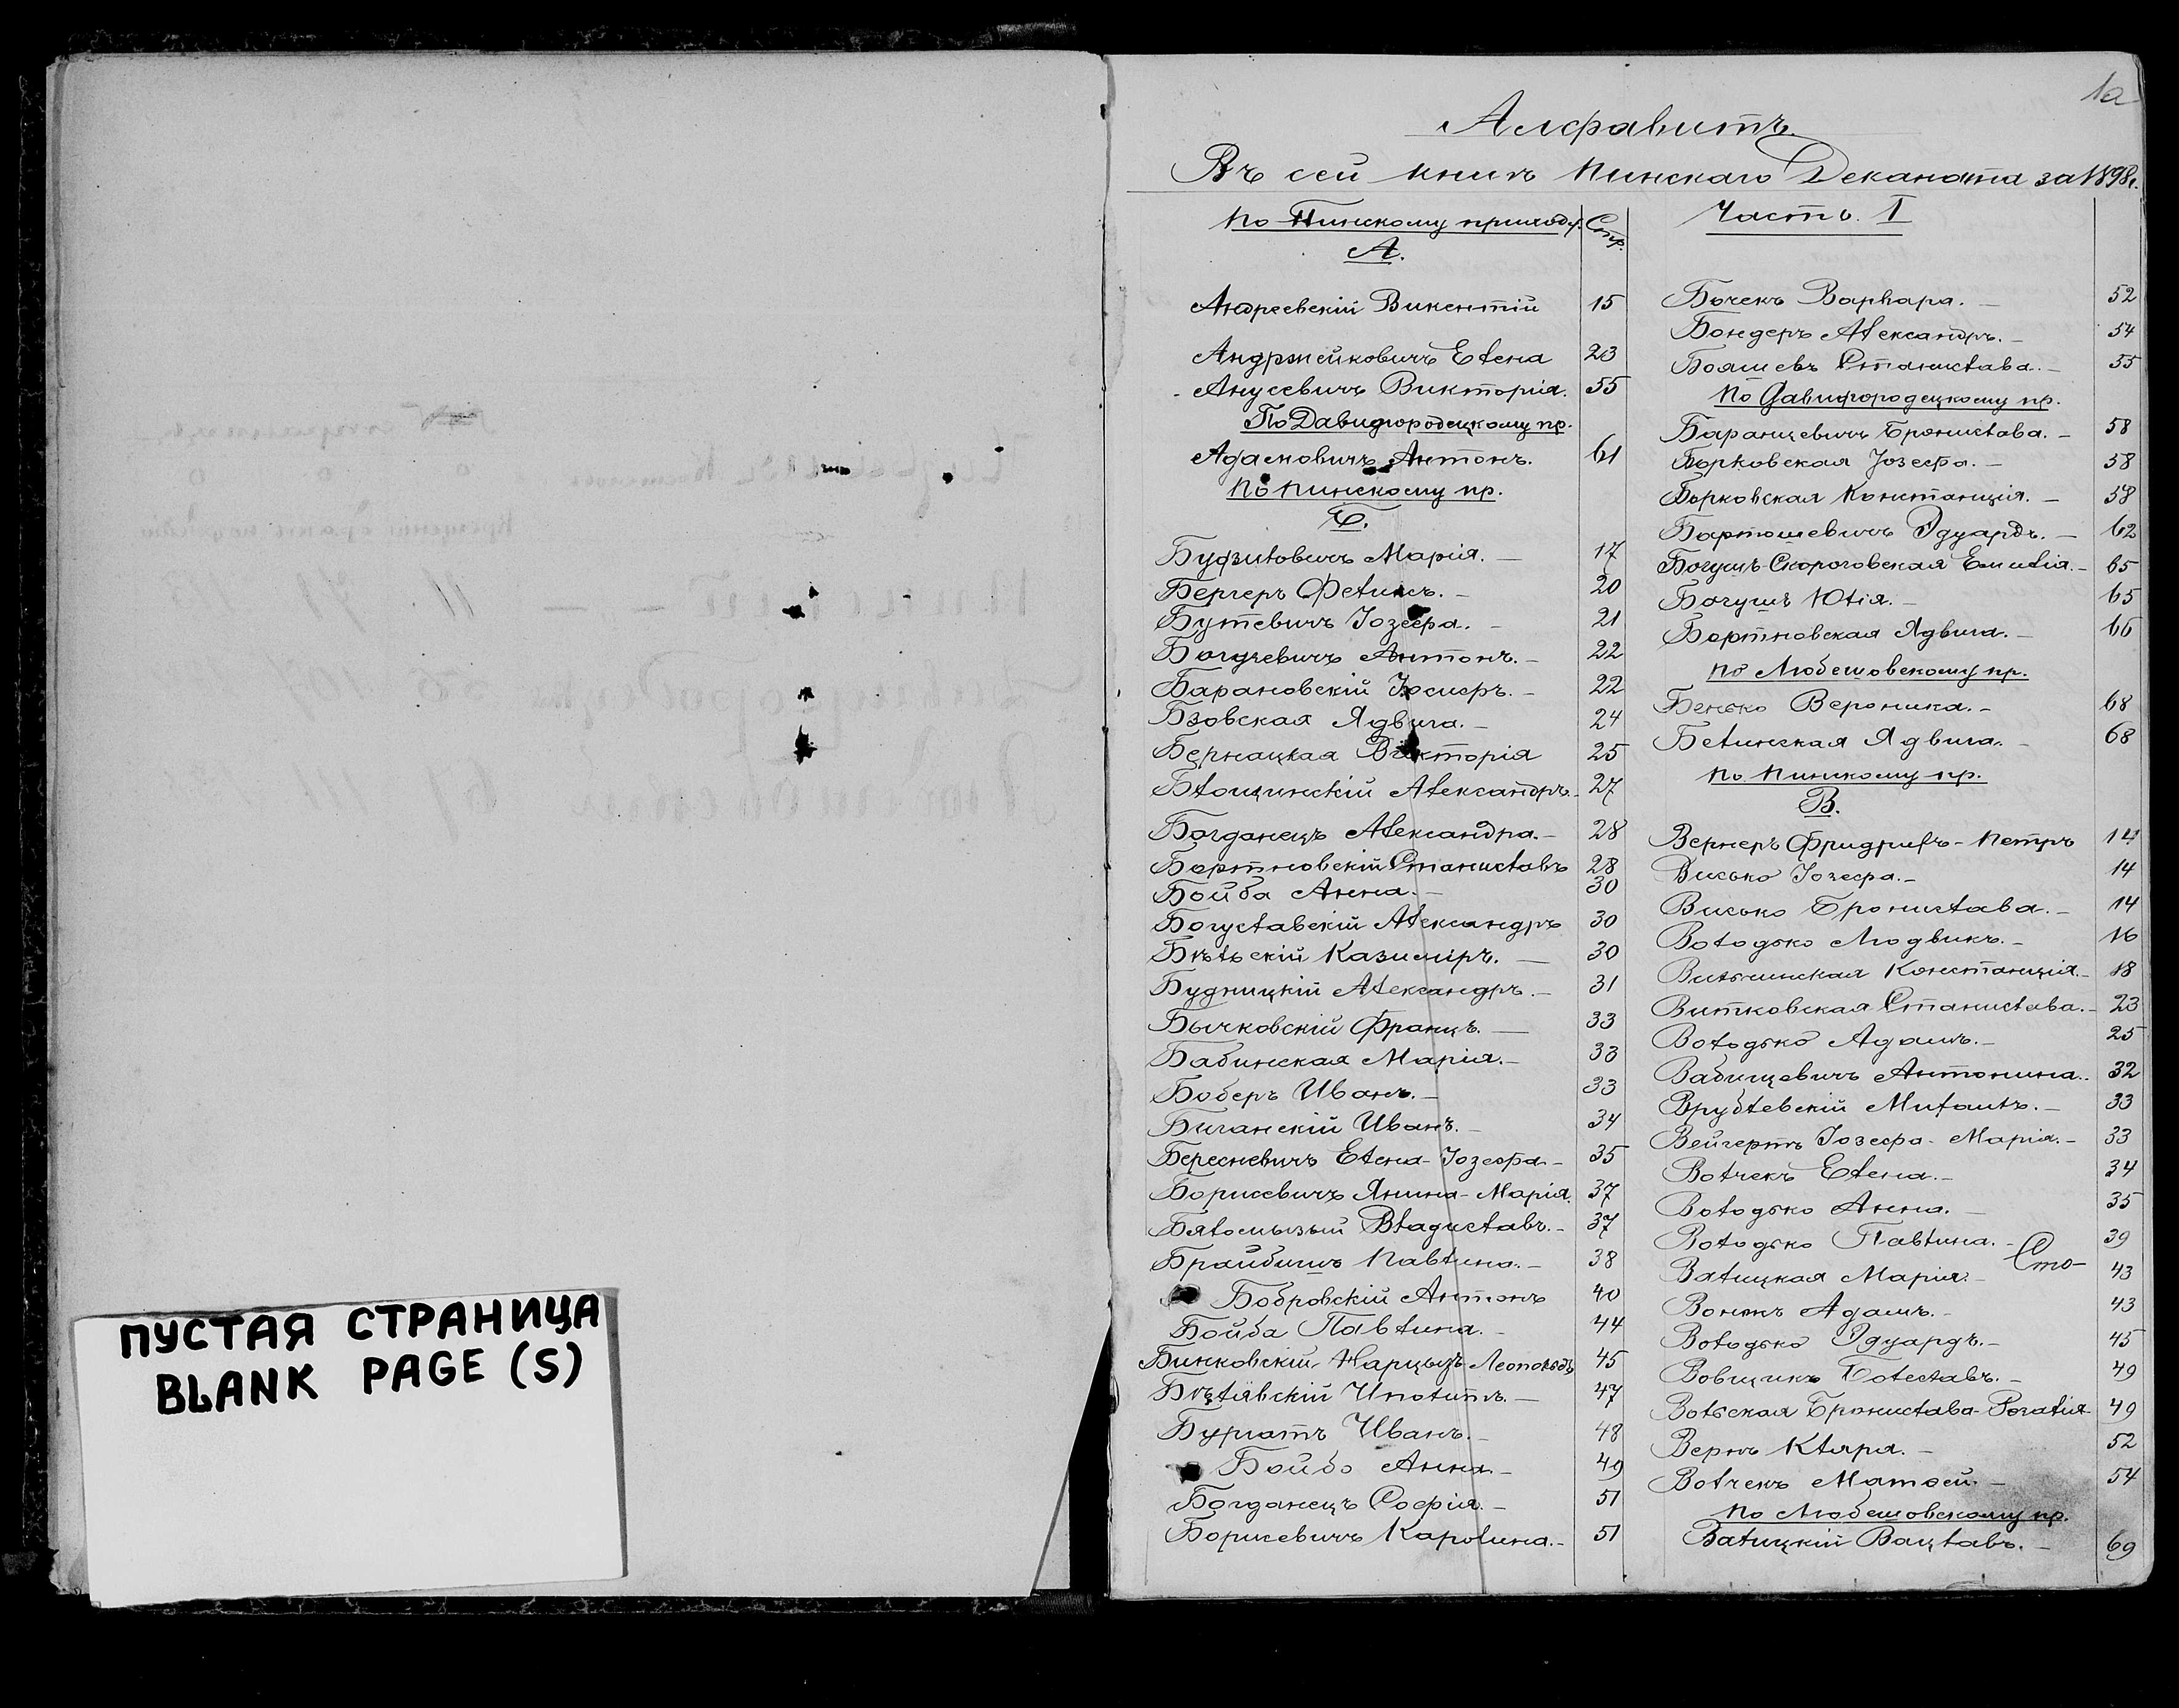 1а
Алфавитъ
Въ сей книгѣ Пинскаго Деканата за 1898 г.
По Пинскому приходу. Стр.
А.
Андреевскій Викентій 15
Андржейковичъ Елена 23
Анусевичъ Викторія. 55
По Давидгородецкому пр.
Адамовичъ Антонъ. 61
По Пинскому пр.
Б.
Буфиловичъ Марія. — 17
Бергеръ Феликсъ. — 20
Бутевичъ Іозефа. — 21
Богуевичъ Антонъ. — 22
Барановскій Іосифъ. — 22
Бзовская Ядвига. — 24
Бернацкая Викторія 25
Блощинскій Александръ. 27
Богданецъ Александра. — 28
Бортновскій Станиславъ 28
Бойба Анна. — 30
Богуславскій Александръ 30
Бѣльскій Казиміръ. — 30
Будницкій Александръ. — 31
Бычковскій Францъ. — 33
Бабинская Марія. — 33
Боберъ Иванъ. — 33
Биганскій Иванъ. — 34
Бересневичъ Елена-Іозефа — 35
Борисевичъ Янина-Марія. 37
Бяломызый Владиславъ. — 37
Брайбишъ Павлина. — 38
Бобровскій Антонъ 40
Бойба Павлина. — 44
Бинковскій Нарцызъ-Леопольдъ 45
Бѣлявскій Иполитъ. — 47
Бургатъ Иванъ. — 48
Бойбо Анна. — 49
Богданецъ Софія. — 51
Борисевичъ Каролина. — 51
Часть. I
Бычекъ Варвара. — 52
Бондеръ Александръ. — 54
Бояшевъ Станислава. — 55
По Давидгородецкому пр.
Баранцевичъ Бронислава. — 58
Борковская Іозефа. — 58
Борковская Констанція. — 58
Бартошевичъ Эдуардъ. — 62
Богушъ-Скороговская Емилія. — 65
Богушъ Юлія. — 65
Бортновская Ядвига. — 66
По Любешовскому пр.
Бенько Вероника. — 68
Белинская Ядвига. — 68
По Пинскому пр.
В.
Вернеръ Фридрихъ-Петръ 14
Висько Іозефа. — 14
Висько Бронислава. — 14
Володько Людвикъ. — 16
Вильчинская Констанція. — 18
Витковская Станислава. — 23
Володько Адамъ. — 25
Вабищевичъ Антонина. 32
Врублевскій Михаилъ. — 33
Вейгертъ Іозефа-Марія. — 33
Волчекъ Елена. — 34
Володько Анна. — 35
Володько Павлина. — 39
Сто-
Валицкая Марія. — 43
Вонжъ Адамъ. — 43
Володько Эдуардъ. — 45
Вовщикъ Болеславъ. — 49
Вольская Бронислава-Розалія 49
Вернъ Клара. — 52
Волчекъ Матфей. — 54
По Любешовскому пр.
Валицкій Вацлавъ. — 69
ПУСТАЯ СТРАНИЦА
BLANK PAGE (S)